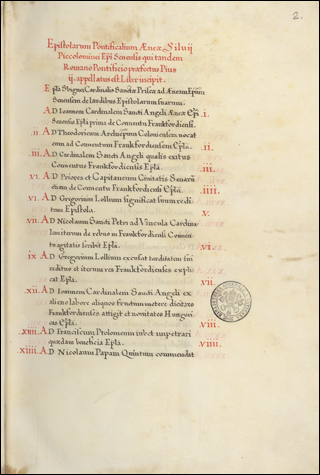 2.
Epistolarum Pontificalium Æneæ Siluij
Piccolominei Epi Senensis qui tandem
Romano Pontificio præfectus Pius
ij. appellatus est Liber incipit.
Epla Sbignei Cardinalis Sanctæ Priscæ ad Æneam Epum
Senensem de laudibus Epistolarum suarum.
AD Ioannem Cardinalem Sancti Angeli Æneæ Epi .I.
Senensis Epla prima de Conuentu Frankfordiensi.
.II. AD Theodoricum Archiepum Coloniensem uocat
eum ad Conuentum Frankfordiensem Epla. .II.
.III. AD Cardinalem Sancti Angeli qualis exitus
Conuentus Frankfordiensis Epla. .III.
.VI. AD Priores et Capitaneum Ciuitatis Senarum
etiam de Conuentu Frankfordiensi Epla. .IIII.
.VI. AD Gregorium Lollium significat suum redi
tum Epistola. V.
.VII. AD Nicolaum Sancti Petri ad Vincula Cardina
lem iterum de rebus in Frankfordiensi Conuen
tu agitatis scribit Epla. .VI.
IX AD Gregorium Lollium excusat tarditatem sui
reditus et iterum res Frankfordienses expli
cat Epla. VII.
XII. AD Ioannem Cardinalem Sancti Angeli ex
alieno labore aliquos fructus metere dicit res
Frankfordienses attigit et nouitates Hungari
cas Epla. VIII.
.XIII. AD Franciscum Ptolomeum iubet impetrari
quædam beneficia Epla. .VIIII.
.XIIII. AD Nicolaum Papam Quintum commendat